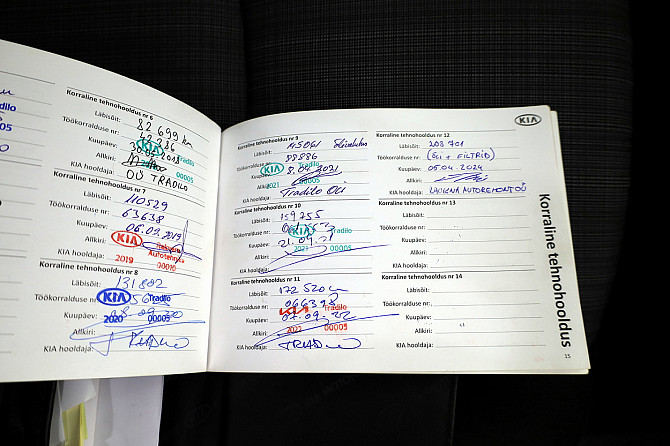 Korraline tehnohooldus nr 6
Läbisõit: 82 699 km
Töökorralduse nr: 42 226
Kuupäev: 30.05.2018
KIA
Tradilo
00005
Allkiri:
KIA hooldaja: OÜ TRADILO
Korraline tehnohooldus nr 7
Läbisõit: 110529
Töökorralduse nr: 63638
Kuupäev: 06.09.2019
KIA
Autotehnika
Allkiri:
2019 00010
KIA hooldaja:
Korraline tehnohooldus nr 8
Läbisõit: 131802
Töökorralduse nr:
KIA Tradilo
Kuupäev:
2020 00005
Allkiri:
KIA hooldaja:
Korraline tehnohooldus nr 9
Läbisõit:
Töökorralduse nr: 98886
Kuupäev: 8.04.2021
KIA
2021 00005
Allkiri:
KIA hooldaja: Tradilo OÜ
Korraline tehnohooldus nr 10
Läbisõit: 159755
Töökorralduse nr:
KIA Tradilo
Kuupäev: 21.09.21
2021 00005
Allkiri:
KIA hooldaja:
Korraline tehnohooldus nr 11
Läbisõit: 172520
Töökorralduse nr: 066398
Tradilo
Kuupäev: 07.09.22
2022 00005
Allkiri:
KIA hooldaja:
KIA
Korraline tehnohooldus nr 12
Läbisõit: 203 701
Töökorralduse nr: (ÕLI + FILTRID)
Kuupäev: 05.04.2024
Allkiri:
KIA hooldaja: LAGEKNA AUTOREMONT OÜ
Korraline tehnohooldus nr 13
Läbisõit:
Töökorralduse nr:
Kuupäev:
Allkiri:
KIA hooldaja:
Korraline tehnohooldus nr 14
Läbisõit:
Töökorralduse nr:
Kuupäev:
Allkiri:
KIA hooldaja:
Korraline tehnohooldus
15